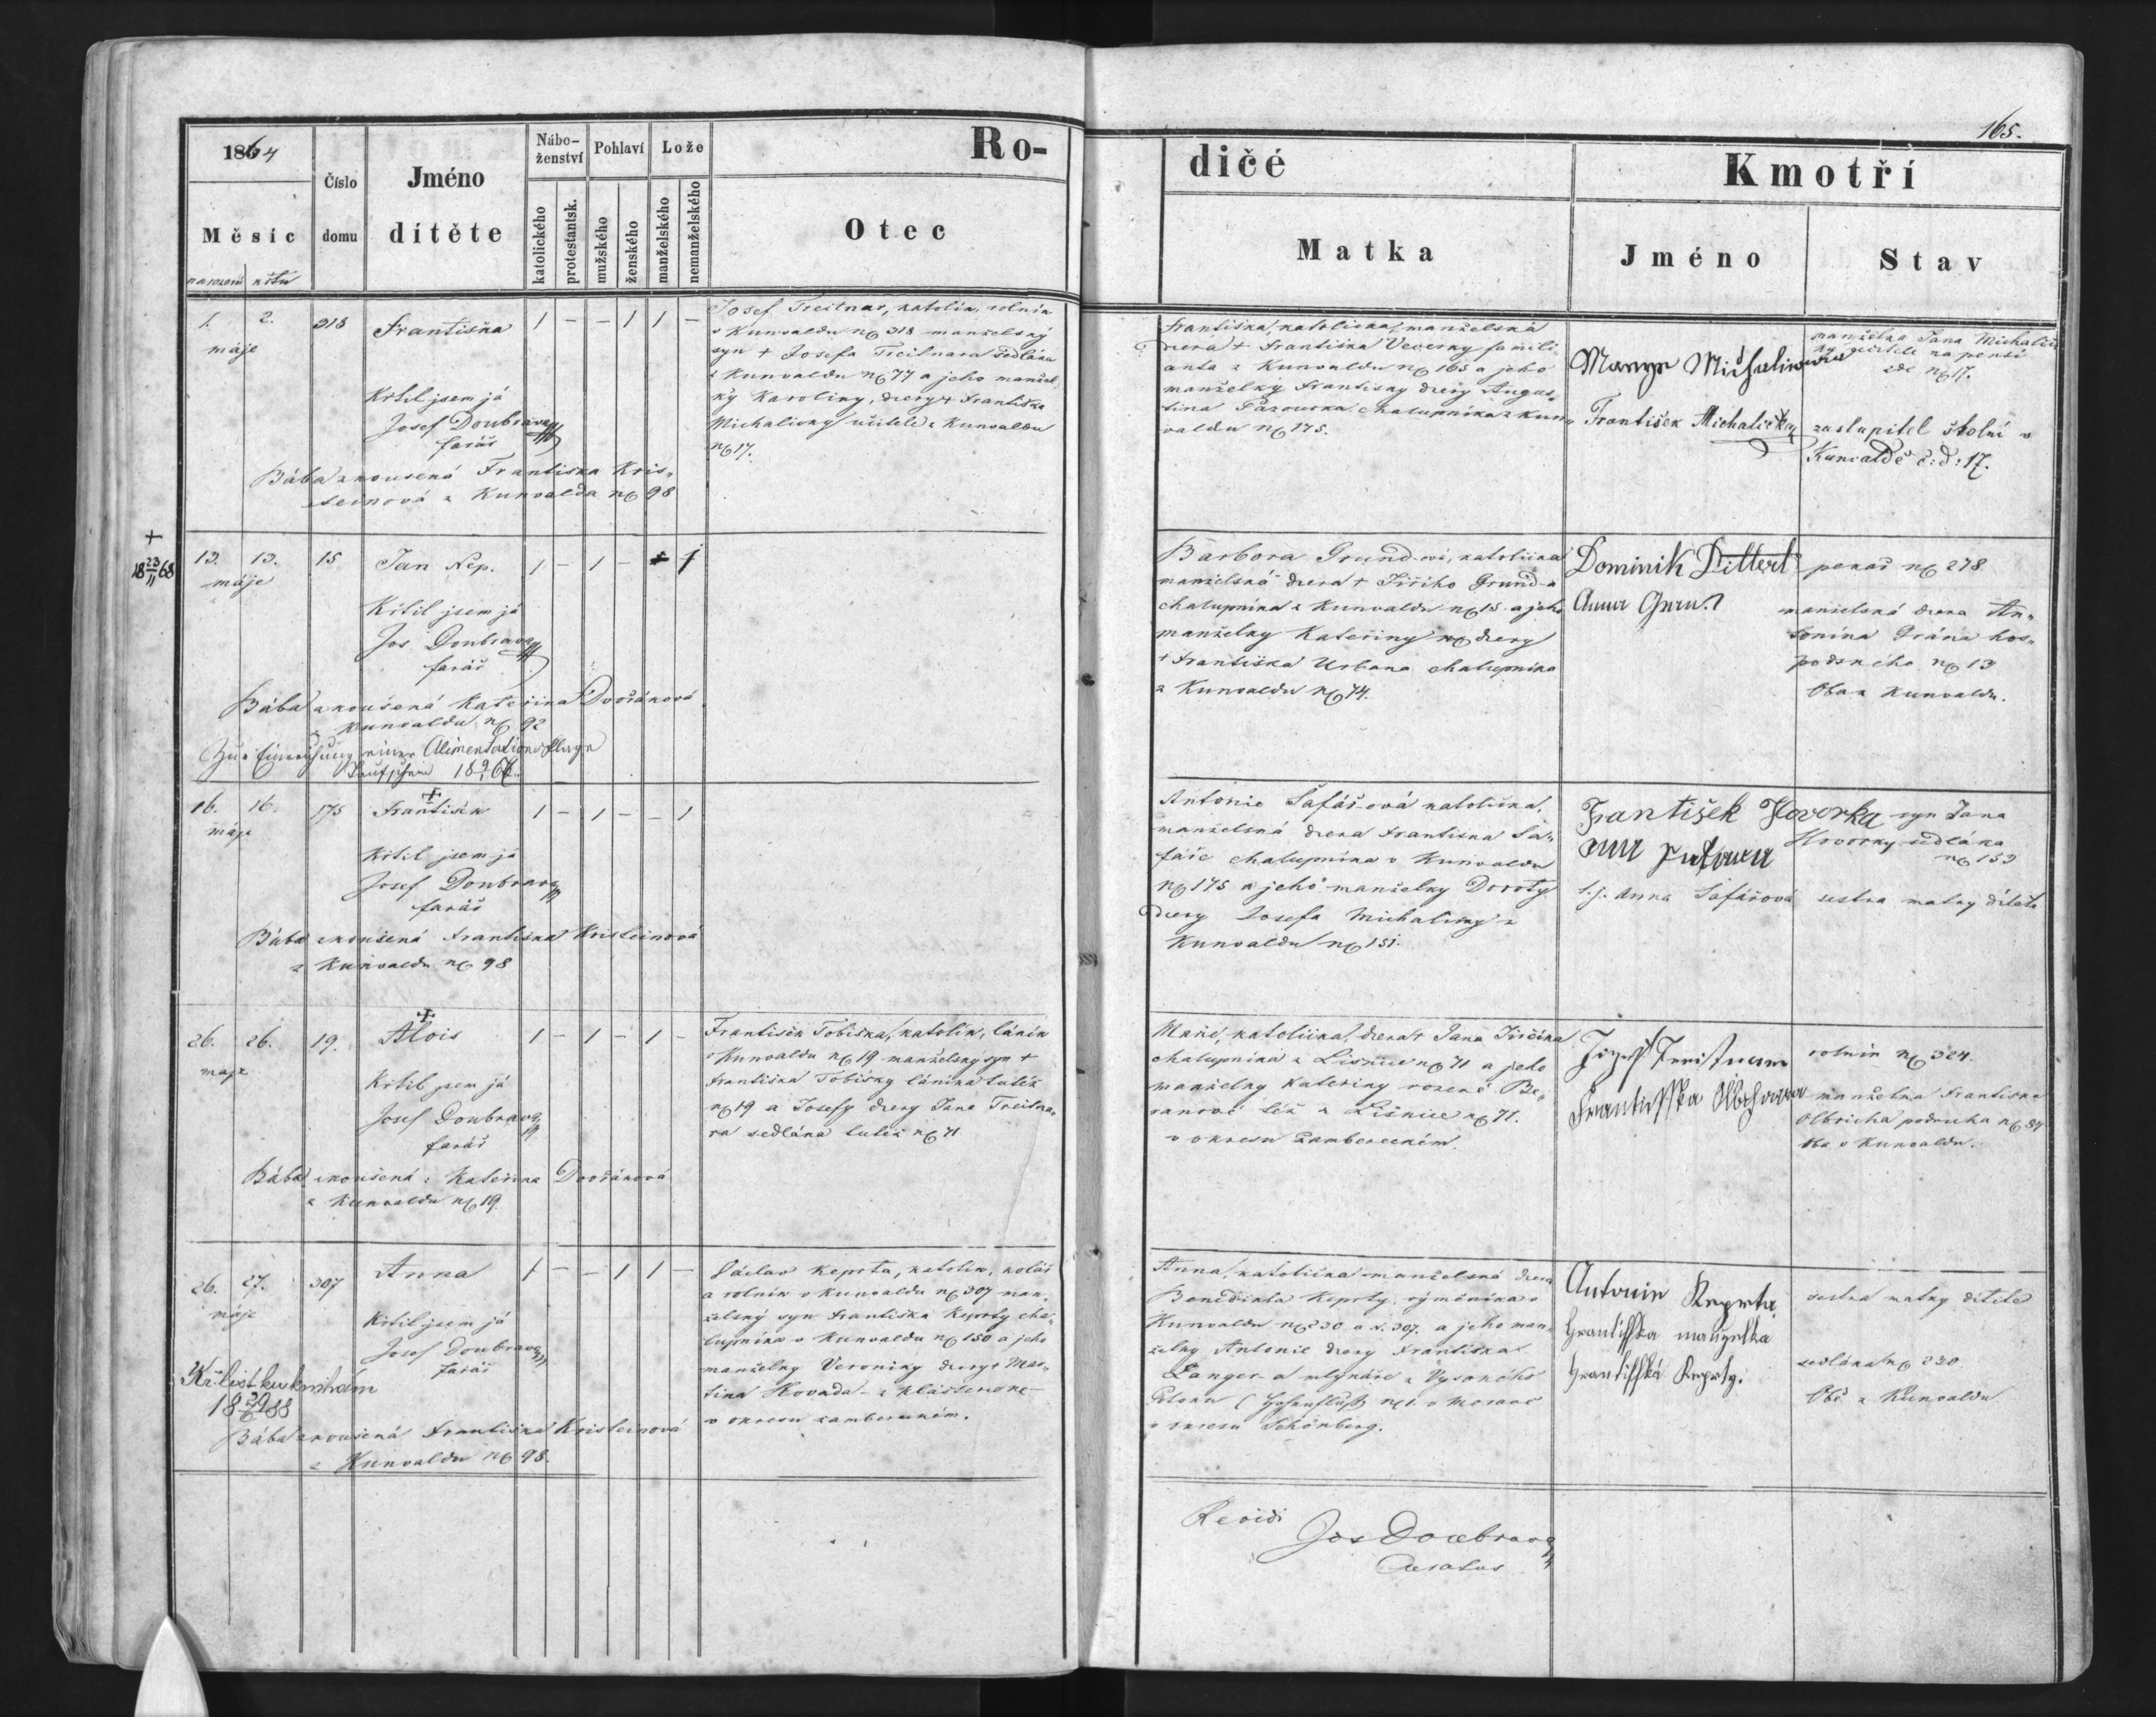 165.
1864
Měsíc
narození křtu
Číslo
domu
Jméno
dítěte
Nábo-
ženství
katolického
protestantsk.
Pohlaví
mužského
ženského
Lože
manželského
nemanželského
Ro-
dičé
Otec
Matka
Kmotří
Jméno
Stav
1. 2.
máje
318
Františka
1 – – 1 1 –
Křtil jsem já
Josef Doubrava
farář
Bába zkoušená Františka Kris-
teinová z Kunvaldu č 98
Josef Treitnar, katolík, rolník
v Kunvaldu č 318 manželský
syn + Josefa Treitnara sedláka
z Kunvaldu č 77 a jeho manžel-
ky Karoliny, dcery + Františka
Michaličky učitele z Kunvaldu
č 17.
Františka, katolička, manželská
dcera + Františka Veverky famili-
anta z Kunvaldu č 165 a jeho
manželky Františky dcery Augus-
tina chalupníka z Kun-
valdu č 175.
František Michalička
manželka Jana Michalič-
ky učitele na pensi
zde č 17.
zastupitel školní v
Kunvaldě č: d: 17.
+
18 23/11 68
13. 13.
máje
15
Jan Nep.
1 – 1 – 1
Křtil jsem já
Jos Doubrava
farář
Bába zkoušená Kateřina Dvořáková
z Kunvaldu č 92
Zur Einreichung einer Alimentationsklage
Taufschein
Barbora Grund-ová, katolička
manželská dcera + Jiřího Grund-a
chalupníka z Kunvaldu č 15 a jeho
manželky Kateřiny dcery
+ Františka Urbana chalupníka
z Kunvaldu č 74.
Dominik Dittert
Anna
pekař č 278
manželská dcera An-
tonína hos-
podského č 13
Oba z Kunvaldu.
16. 16.
máje
175
+
František
1 – 1 – – 1
Křtil jsem já
Josef Doubrava
farář
Bába zkoušená Františka Kristeinová
z Kunvaldu č 98
Antonie Šafář-ová katolička,
manželská dcera Františka Ša-
fáře chalupníka v Kunvaldu
č 175 a jeho manželky Doroty
dcery Josefa Michaličky z
Kunvaldu č 151.
František Hovorka
t. j. Anna Šafářová
syn Jana
Hovorky sedláka
č 153
sestra matky dítěte
26. 26.
máje
19.
+
Alois
1 – 1 – 1 –
Křtil jsem já
Josef Doubrava
farář
Bába zkoušená: Kateřina Dvořáková
z Kunvaldu č 19.
František Tobiška, katolík, láník
v Kunvaldu č 19 manželský syn +
Františka Tobišky láníka tutéž
č 19 a Josefy dcery Jana Treitna-
ra sedláka tutéž č 71
Marie, katolička, dcera + Jana Jirčíka
chalupníka z Lišnice č 71 a jeho
manželky Kateřiny rozené Be-
ranové též z Lišnice č 71.
v okresu žambereckém.
Františka
rolník č 324.
manželka Františka
Olbricha podruha č 84
oba v Kunvaldu.
26. 27.
máje
307
Anna
1 – – 1 1 –
Křtil jsem já
Josef Doubrava
farář
Kř. list ku knihám
Bába zkoušená Františka Kristeinová
z Kunvaldu č 98.
Václav Keprta, katolík, kolář
a rolník v Kunvaldu č 307 man-
želský syn Františka Keprty cha-
lupníka v Kunvaldu č 150 a jeho
manželky Veroniky dcery + Mar-
tina Hovada – z Klášterce
v okresu žambereckém.
Anna, katolička manželská dcera
Benedikta Keprty, výměnkáře
Kunvaldu č 230 a n. 307. a jeho man-
želky Antonie dcery Františka
Langer-a mlynáře z Vysokého
Potoku (Hohenfluß) č 1. v Moravě
v okresu Schönberg.
Antonie Keprta
Františka manželka
Františka Keprty.
sestra matky dítěte
sedláka č 230.
Obě z Kunvaldu
Revidi
Jos Doubrava
Curatus